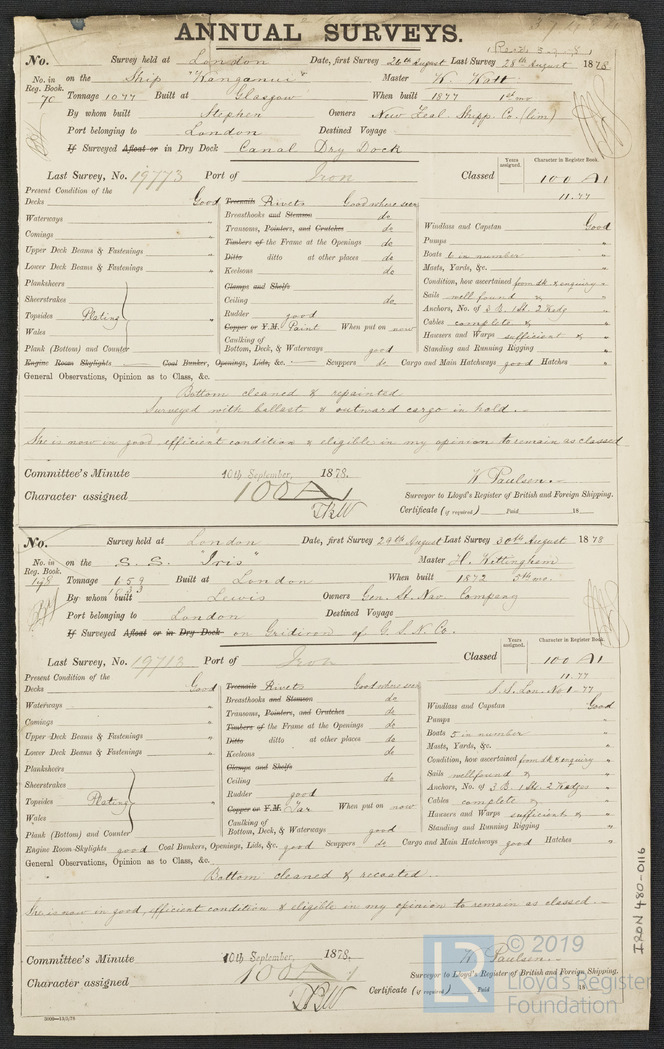 ANNUAL SURVEYS.
No. Survey held at London Date, first Survey 26th August Last Survey 28th August 1878
No. in Reg. Book. on the Ship "Wanganui" Master W. Watt
70 Tonnage 1077 Built at Glasgow When built 1877 1st mo
By whom built Stephen Owners New Zeal. Shipp. Co. (lim)
Port belonging to London Destined Voyage
If Surveyed Afloat or in Dry Dock Canal Dry Dock
Years assigned. Character in Register Book.
Last Survey, No. 19773 Port of Iron Classed 100 A1
11.77
Present Condition of the
Decks Good
Waterways "
Comings "
Upper Deck Beams & Fastenings "
Lower Deck Beams & Fastenings "
Planksheers
Sheerstrakes
Topsides Plating "
Wales
Plank (Bottom) and Counter
Treenails Rivets Good where seen
Breasthooks and Stemson do
Transoms, Pointers, and Crutches do
Timbers of the Frame at the Openings do
Ditto ditto at other places do
Keelsons do
Clamps and Shelfs
Ceiling do
Rudder good
Copper or Y.M. Paint When put on now
Caulking of
Bottom, Deck, & Waterways good
Windlass and Capstan Good
Pumps "
Boats 6 in number "
Masts, Yards, &c. "
Condition, how ascertained from dk & enquiry "
Sails well found & "
Anchors, No. of 3 B. 1 St. 2 Kedg "
Cables complete & "
Hawsers and Warps sufficient & "
Standing and Running Rigging "
Engine Room Skylights Coal Bunker, Openings, Lids, &c. Scuppers do Cargo and Main Hatchways good Hatches "
General Observations, Opinion as to Class, &c.
Bottom cleaned & repainted
Surveyed with ballast & outward cargo in hold.
She is now in good efficient condition & eligible in my opinion to remain as classed
Committee's Minute 10th September, 1878.
Character assigned 100 A1
W. Paulsen.
Surveyor to Lloyd's Register of British and Foreign Shipping.
Certificate (if required) Paid 18
No. Survey held at London Date, first Survey 29th August Last Survey 30th August 1878
No. in Reg. Book. on the S. S. "Iris" Master H. Kettingham
198 Tonnage Built at London When built 1872 5th mo.
By whom built Lewis Owners Gen. St. Nav Company
Port belonging to London Destined Voyage
If Surveyed Afloat or in Dry Dock on Gridiron of G. S. N. Co.
Years assigned. Character in Register Book.
Last Survey, No. 19713 Port of Iron Classed 100 A1
11.77
S.S. Lon. No 1-77
Present Condition of the
Decks Good
Waterways "
Comings "
Upper Deck Beams & Fastenings "
Lower Deck Beams & Fastenings "
Planksheers
Sheerstrakes
Topsides Plating "
Wales
Plank (Bottom) and Counter
Treenails Rivets Good where seen
Breasthooks and Stemson do
Transoms, Pointers, and Crutches do
Timbers of the Frame at the Openings do
Ditto ditto at other places do
Keelsons do
Clamps and Shelfs
Ceiling do
Rudder good
Copper or Y.M. Tar When put on now
Caulking of
Bottom, Deck, & Waterways good
Windlass and Capstan Good
Pumps "
Boats 5 in number "
Masts, Yards, &c. "
Condition, how ascertained from dk & enquiry "
Sails well found & "
Anchors, No. of 3 B. 1 St. 2 Kedges "
Cables complete & "
Hawsers and Warps sufficient & "
Standing and Running Rigging "
Engine Room Skylights good Coal Bunkers, Openings, Lids, &c. good Scuppers do Cargo and Main Hatchways good Hatches "
General Observations, Opinion as to Class, &c.
Bottom cleaned & recoated.
She is now in good, efficient condition & eligible in my opinion to remain as classed.
Committee's Minute 10th September, 1878.
Character assigned 100 A 1
W. Paulsen.
Surveyor to Lloyd's Register of British and Foreign Shipping.
Certificate (if required) Paid 18
2000—13/2/78
IRON 480-0116
LR © 2019
Lloyd's Register
Foundation